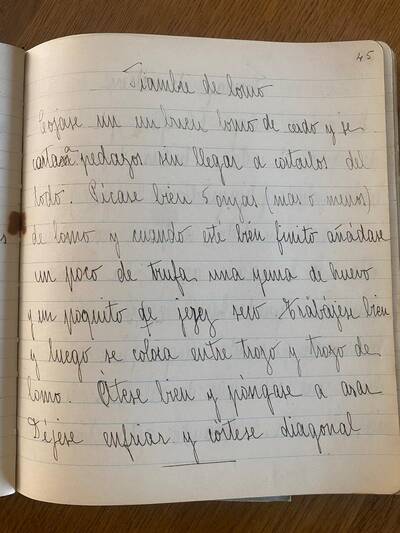 45
Fiambre de lomo
Cojase un un buen lomo de cerdo y se
corta a pedazos sin llegar a cortarlos del
todo. Picase bien 5 onzas (mas o menos)
de lomo y cuando esté bien finito añádase
un poco de trufa una yema de huevo
y un poquito de jerez seco Trábajese bien
y luego se coloca entre trozo y trozo de
lomo. Atese bien y póngase a asar
Déjese enfriar y córtese diagonal